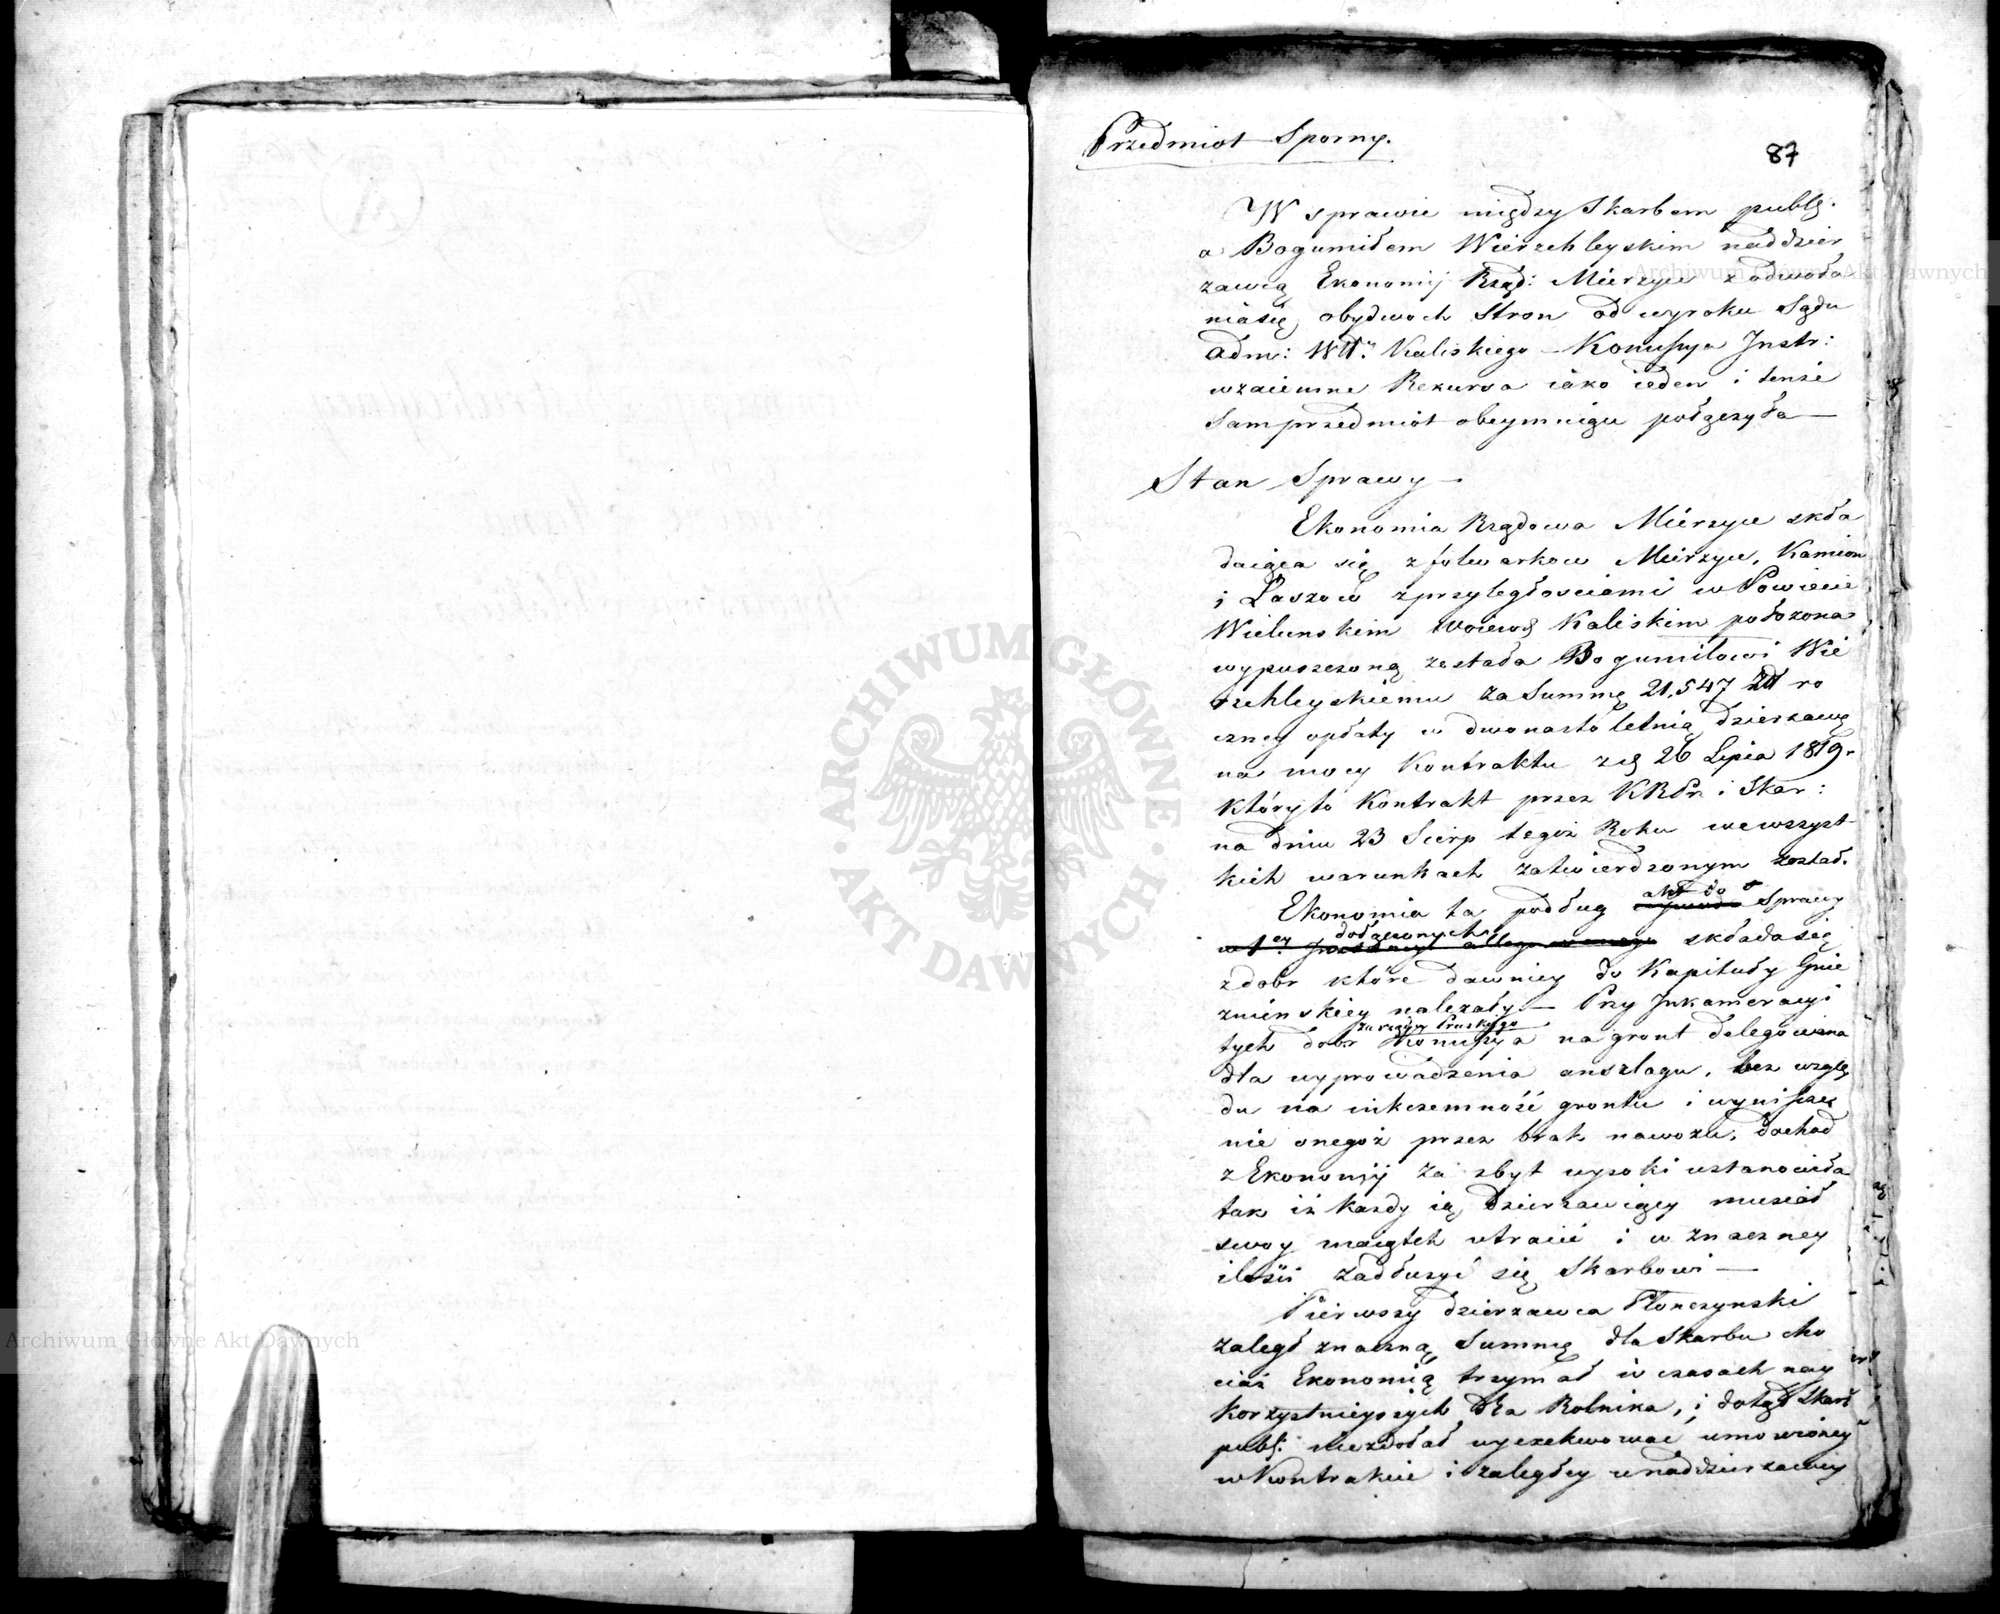 Przedmiot Sporny.
87
W sprawie między Skarbem publg.
a Bogumiłem Wierzchleyskim naddzier
zawcą Ekonomij Rząd: Mierzyce z odwoła
niasię obydwoch Stron od wyroku Sądu
adm: Wdt. Kaliskiego – Kommissya Instr:
wzaiemne Rekursa iako ieden i tenże
Sam przedmiot obeymuiące połączyła —
Stan Sprawy —
Ekonomia Rządowa Mierzyce skła
daiąca się z folwarkow Mierzyce, Kamion
i Łaszow z przyległosciami w Powiecie
Wielunskim Woiewd Kaliskim położona
wypuszczoną została Bogumiłowi Wie
rzchleyskiemu za Summę 21,547 Zł ro
czney opłaty w dwonasto letnią dzierzawę
na mocy Kontraktu z dg 26 Lipca 1819 r
któryto Kontrakt przez KRPr. i Skar:
na dniu 23 Sierp tegoż Roku wewszyst
kich warunkach zatwierdzonym został.
Ekonomia ta podług akt do Sprawy
dołączonych składa się
z dobr które dawniey do Kapituły Gnie
znienskiey nalezały — Przy Inkameracyi
za rządu Pruskiego
tych dobr Kommissya na gront delegowana
dla wyprowadzenia anszlagu, bez wzglę
du na nikczemność grontu i wyniszcze
nie onegoż przez brak nawozu, dochod
z Ekonomij za zbyt wysoki ustanowiła
tak iż kazdy ią dzierzawiący musiał
swoy maiątek utracić i w znaczney
ilości zadłużyć się Skarbowi —
Pierwszy dzierzawca Płonczynski
zaległ znaczną Summę dla Skarbu cho
ciaż Ekonomią trzymał w czasach nay
korzystnieyszych dla Rolnika, i dotąd Skarb
publ: niezdołał wyexekwować umowioney
w Kontrakcie i zaległey unaddzierzawcy
Archiwum Główne Akt Dawnych
Archiwum Główne Akt Dawnych
ARCHIWUM GŁÓWNE · AKT DAWNYCH ·